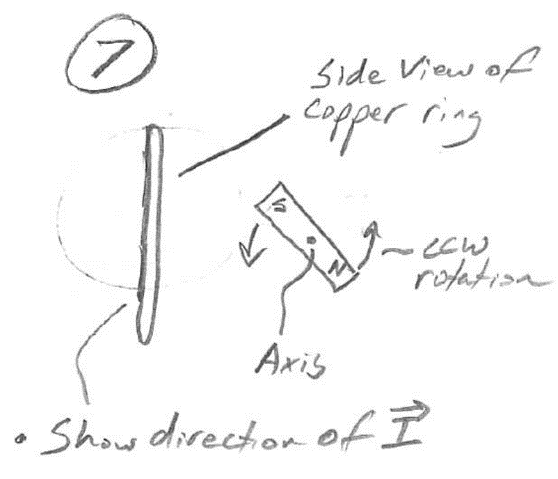 7
Side View of
copper ring
S
N
CCW
rotation
Axis
• Show direction of I